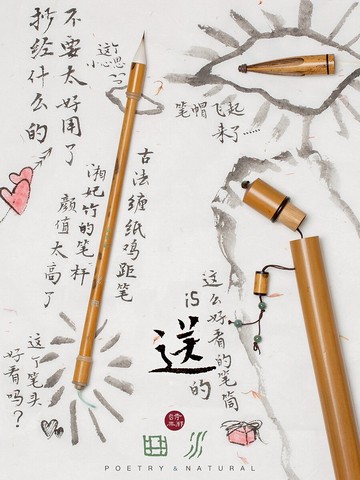 抄经什么的
不要太好用了
这个
小心思
笔帽飞起
来了……
古法缠纸鸡距笔
湘妃竹的笔杆
颜值太高了
这么好看的笔筒
is
送
的
这个笔头
好看吗？
POETRY & NATURAL